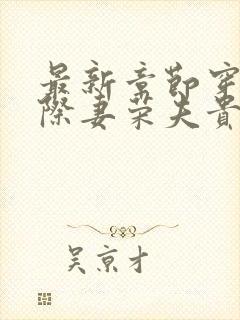 最新章節穿
際妻荣夫貴
吴京才